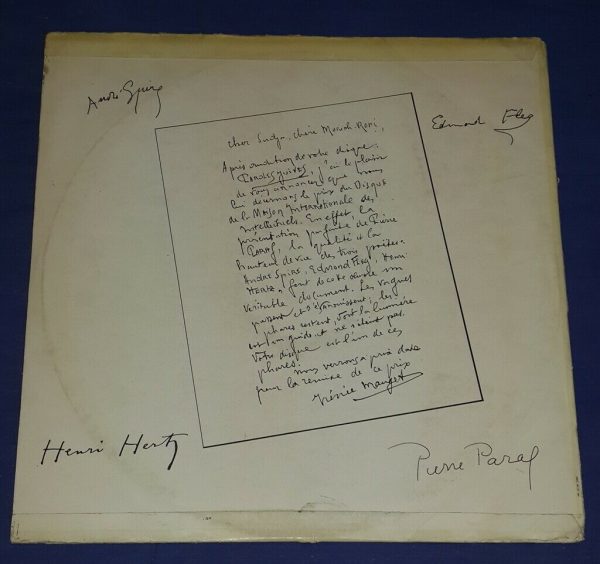 André Spire
Edmond Fleg
Cher Sadja, chère Moriah-Roni,
Après audition de votre disque:
j'ai le plaisir
de vous annoncer que nous
lui décernons le prix du Disque
de la Maison Internationale des
intellectuels. En effet, la
présentation parfaite de Pierre
Paraf, la qualité et la
hauteur de vue des trois poètes:
André Spire, Edmond Fleg, Henri
Hertz, font de cette œuvre un
véritable document. Les vagues
passent et s'évanouissent, les
phares restent, dont la lumière
est un guide et ne s'éteint pas.
Votre disque est l'un de ces
phares.
nous verrons à prix date
pour la remise de ce prix
Henri Hertz
Pierre Paraf